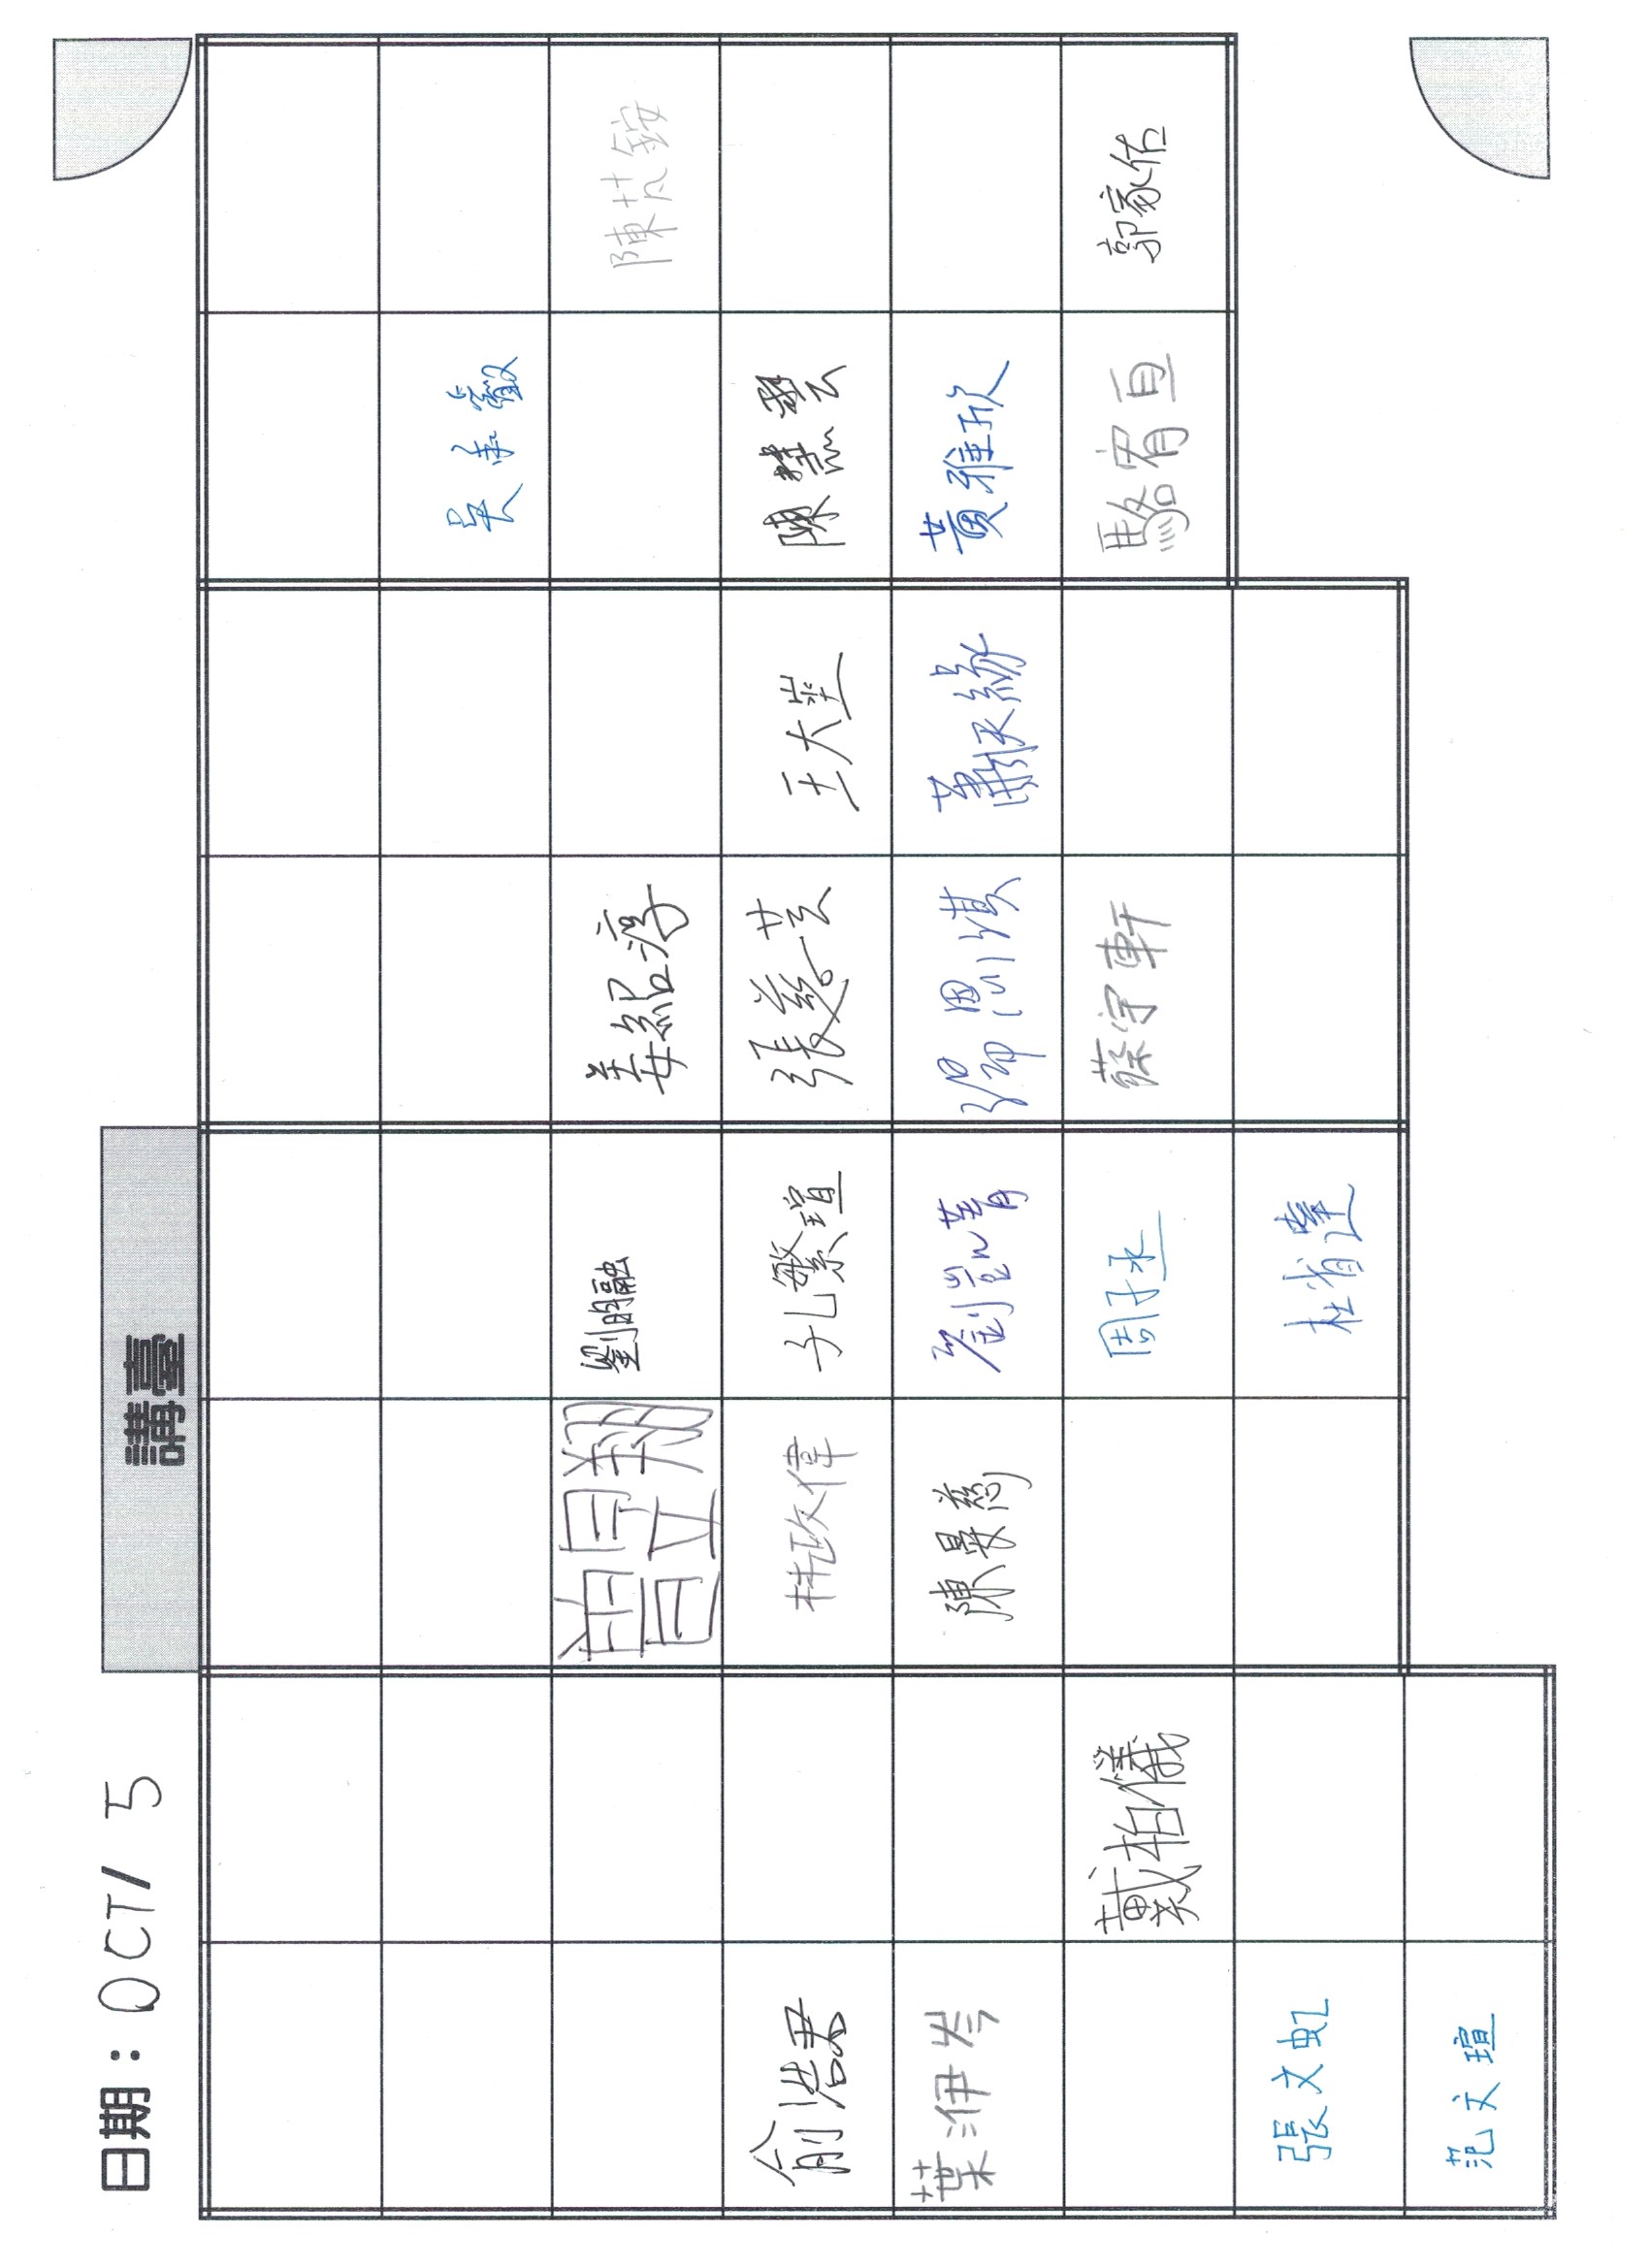 日期：OCT/ 5
講臺
吳承叡
曾昱翔 劉昀融 姜紹淳 陳芃銨
俞浩君 林政偉 孔繁瑄 張慈芸 王大坐 陳慧雲
葉洢岑 陳晏慈 劉凱菁 思淇 蕭天緣 黃雅欣
戴柏儀 周子丞 蔡宇軒 駱宥亘 郭家佑
張文虹 杜省達
范文瑄